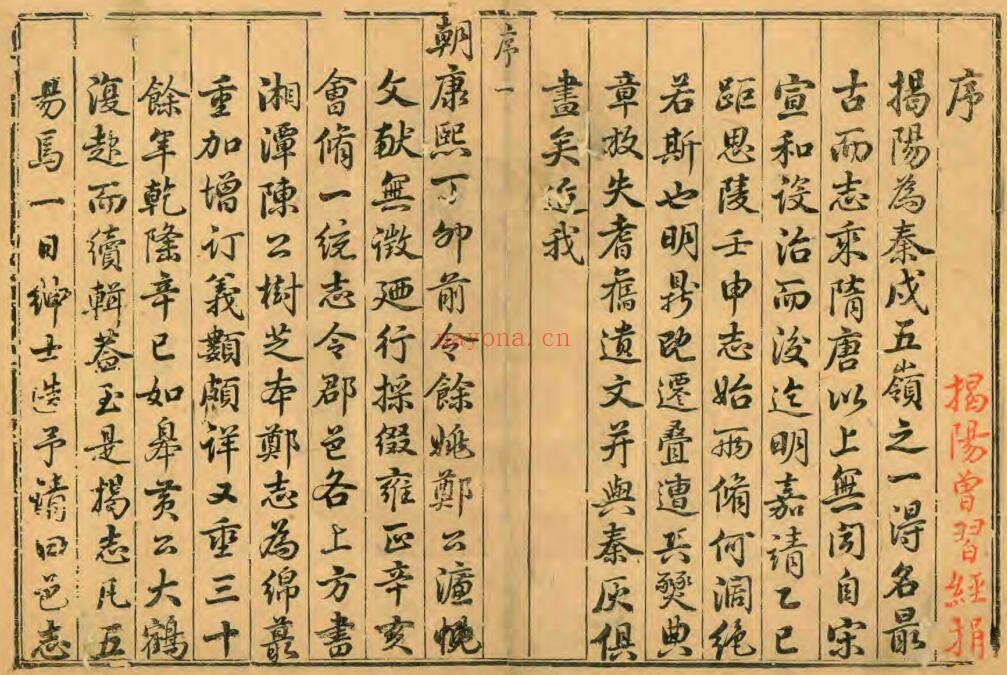 序
揭陽曾習經捐
揭陽為秦戍五嶺之一得名最
古而志乘隋唐以上無聞自宋
宣和設治而後迄明嘉靖乙巳
距思陵壬申志始兩脩何濶絶
若斯也明鼎既遷疊遭兵燹典
章放失耆舊遺文并與秦灰俱
盡矣迨我
序 一
朝康熙丁卯前令餘姚鄭公濂慨
文獻無徵廼行採綴雍正辛亥
會脩一統志令郡邑各上方書
湘潭陳公樹芝本鄭志為綿蕞
重加增訂義類頗詳又垂三十
餘年乾隆辛巳如皋黃公大鶴
復起而續輯蓋至是揭志凡五
易焉一日紳士造予請曰邑志
nayona.cn